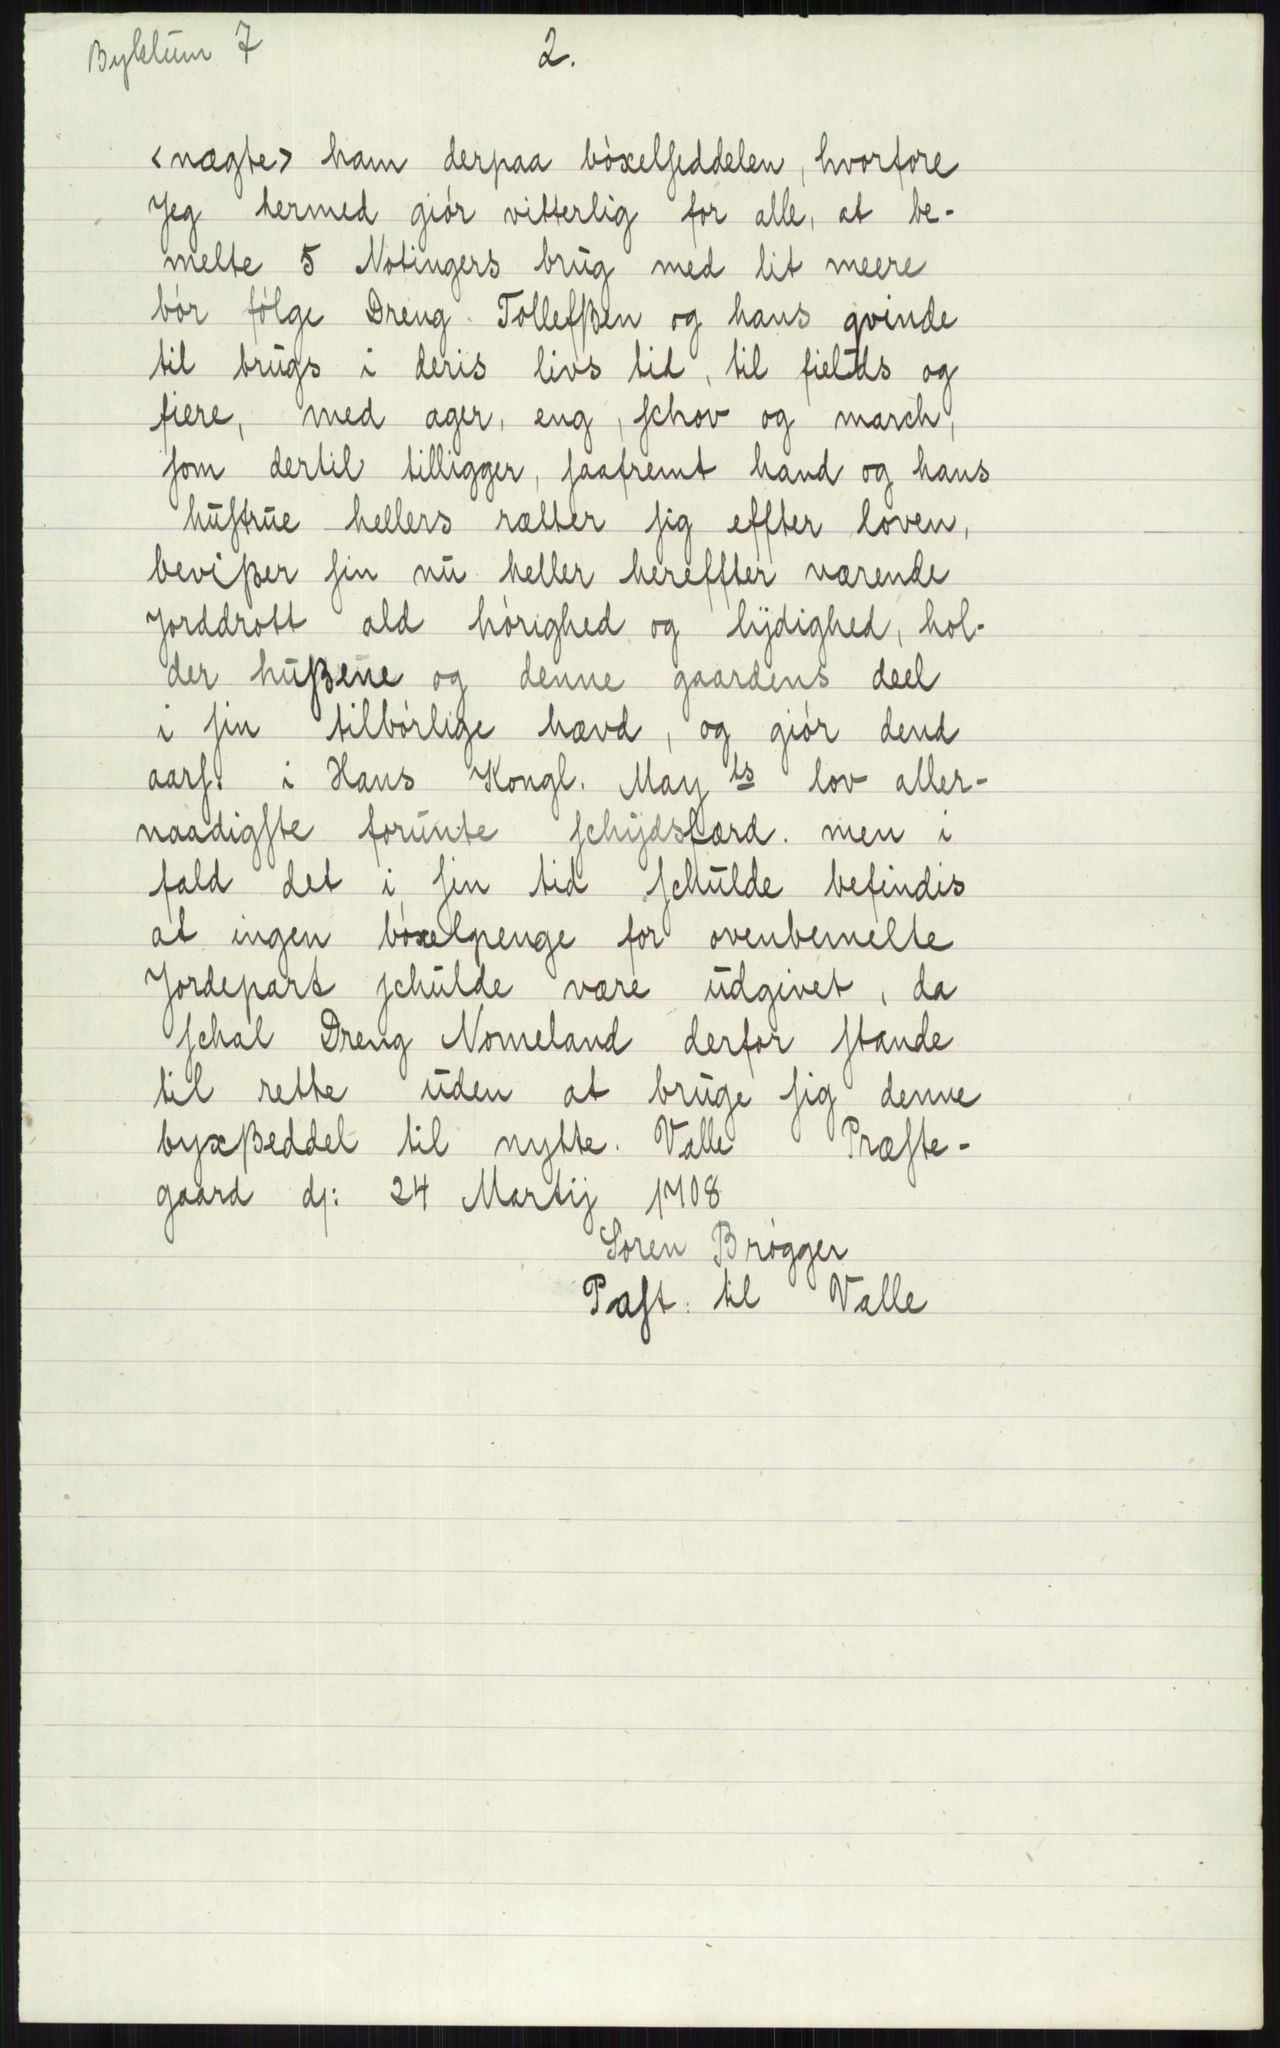 Byklum 7
2.
<nægte> ham derpaa bòxelſeddelen, hvorfore
Jeg hermed giòr vitterlig for alle, at be-
melte 5 Notingers brug med lit meere
bòr fòlge Dreng Tollefßen og hans qvinde
til brugs i deris livs tid, til fields og
fiere, med ager, eng, ſchov og march,
ſom dertil tilligger, ſaafremt hand og hans
huſtrue hellers rætter ſig effter loven,
bevißer ſin nu heller hereffter værende
Jorddrott ald hòrighed og lÿdighed, hol-
der hußene og denne gaardens deel
i ſin tilbòrlige hævd, og giòr dend
aarſ: i Hans Kongl. May ts lov aller-
naadigſte forunte ſchÿdsfærd. men i
fald det i ſin tid ſchulde befindis
at ingen bòxelpenge for ovenbemelte
Jordepart ſchulde være udgivet, da
ſchal Dreng Nomeland derfor ſtande
til rette uden at bruge ſig denne
byxßeddel til nytte. Valle Præſte-
gaard dj: 24 Martij 1708
Soren Brògger
Paſt: til Valle